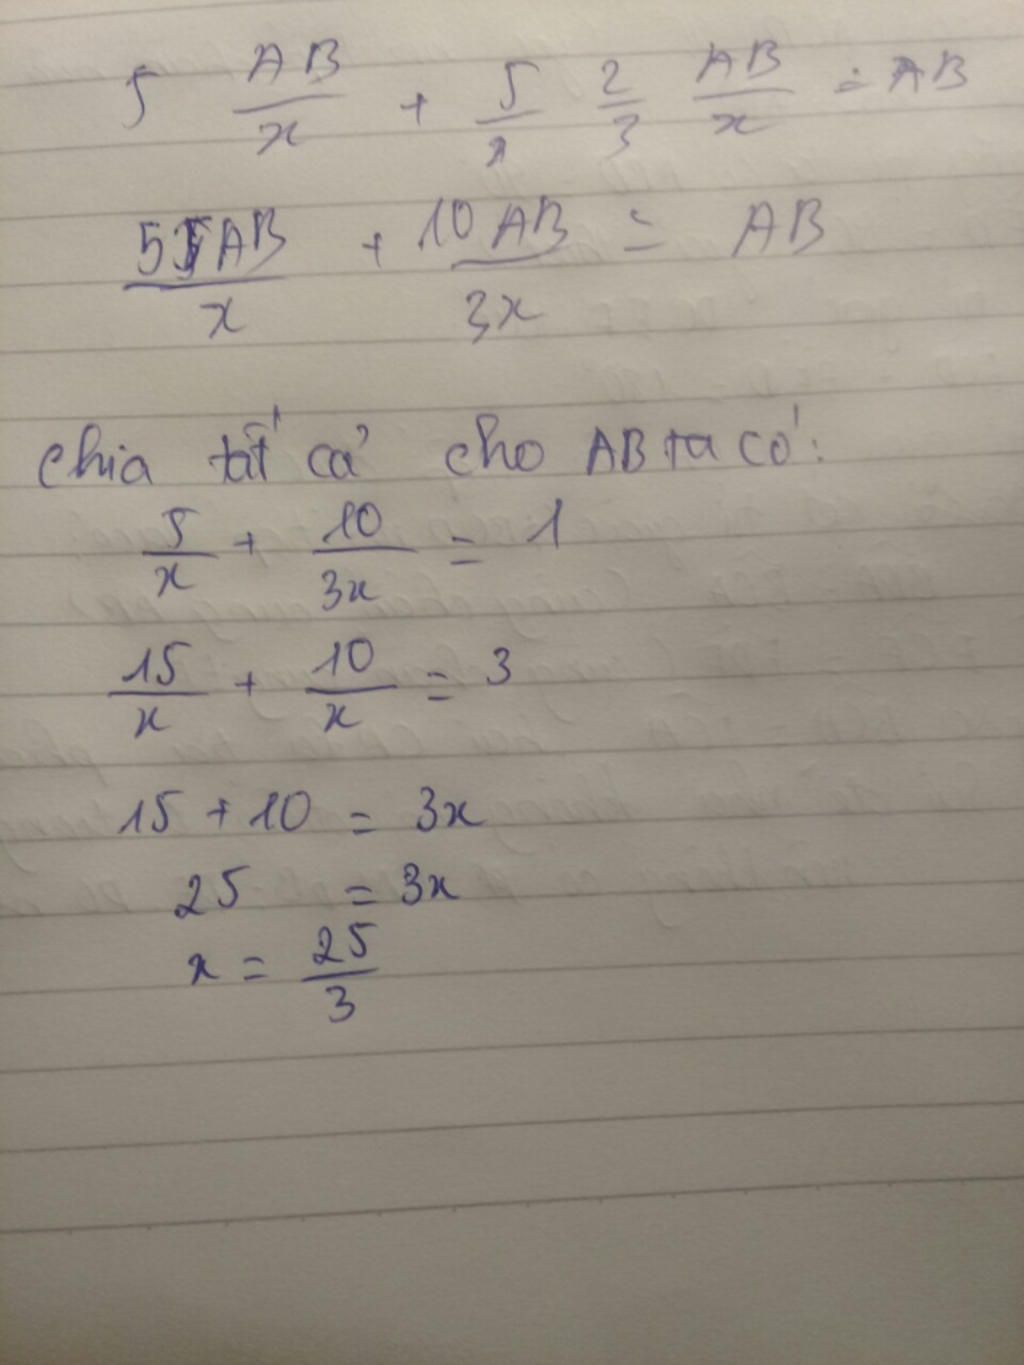 5 AB/x + 5/1 2/3 AB/x = AB
5AB/x + 10AB/3x = AB
Chia tất cả cho AB ta có:
5/x + 10/3x = 1
15/x + 10/x = 3
15 + 10 = 3x
25 = 3x
x = 25/3